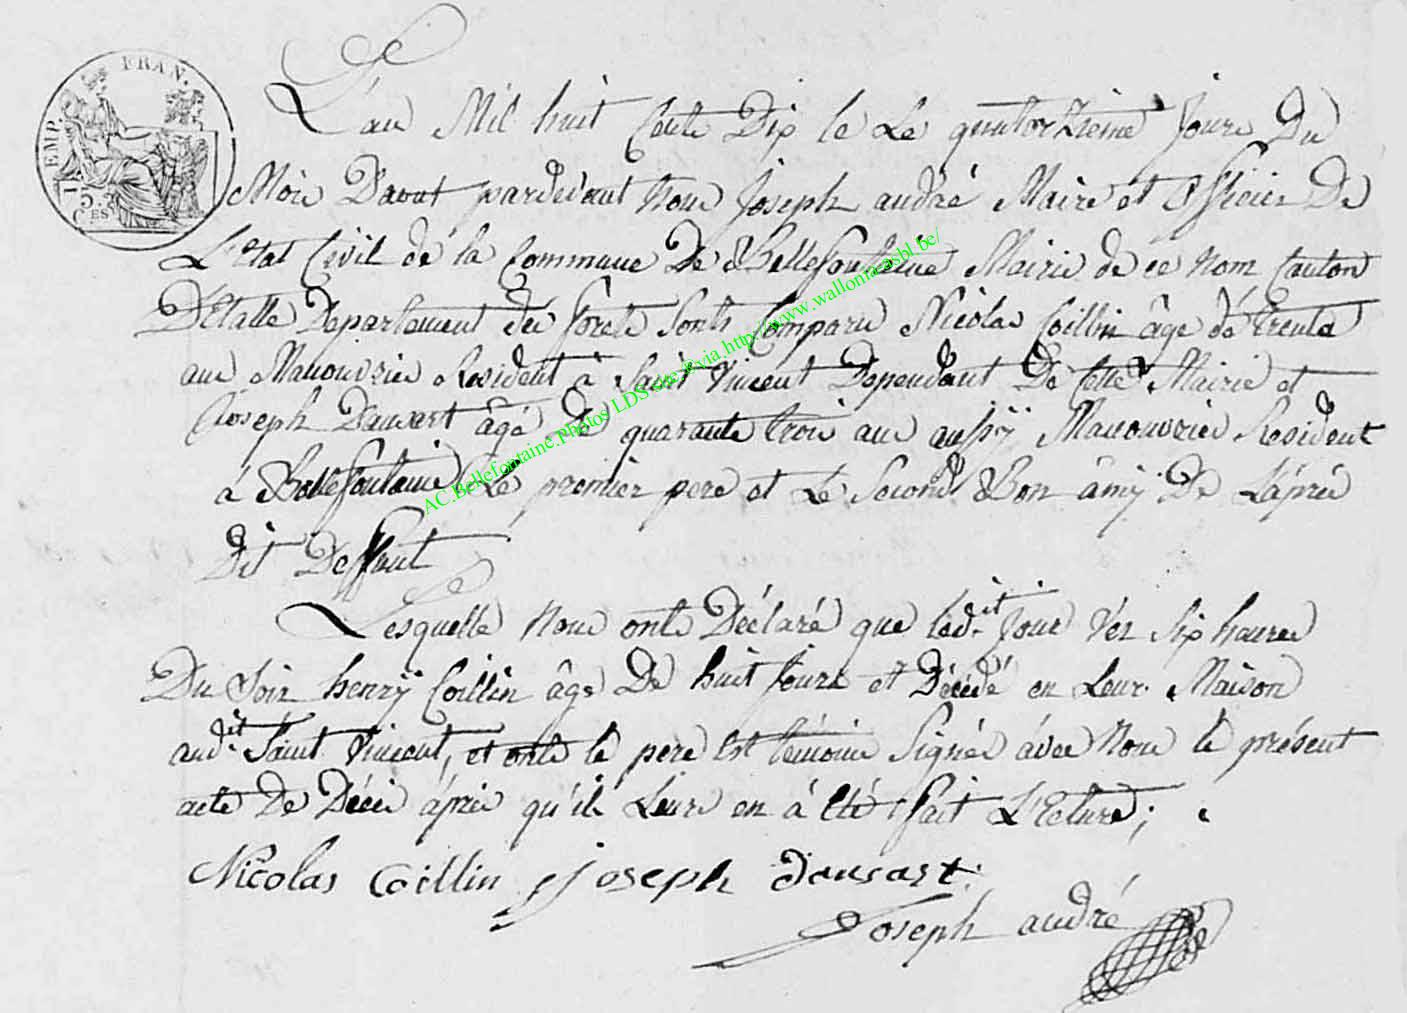 EMP. FRAN.
75.
C.ES
L'an Mil huit Cents Dix le Le quatorzieme Jour Du
Mois D'aout pardevant Nous Joseph andré Maire et Officier De
L'Etat Civil de la Commune De Bellefontaine Mairie de ce Nom Canton
D'Etalle Departement des forets Sonts Comparu Nicolas Coillin âge de trente
ans Manouvrier Resident à Saint Vincent Dependant De Cette Mairie et
Joseph Dausart âgé de quarante trois ans aussÿ Manouvrier Resident
à Bellefontaine Le premier pere et Le Second Bon âmÿ De L'áprés
Dit Deffunt
Lesquelle Nous onts Déclaré que led.it Jour Vér Six heures
Du Soir henrÿ Coillin âge De huit Jours et Décédé en Leur Maison
aud.it Saint Vincent, et onts le pere Est témoins Signés ávec Nous le présent
acte De Décés áprés qu'il Leurs en á Eté fait L'Ecture;
Nicolas Coillin Joseph dausart
Joseph andré
AC.Bellefontaine.Photos LDS via http://www.wallonia-asbl.be/